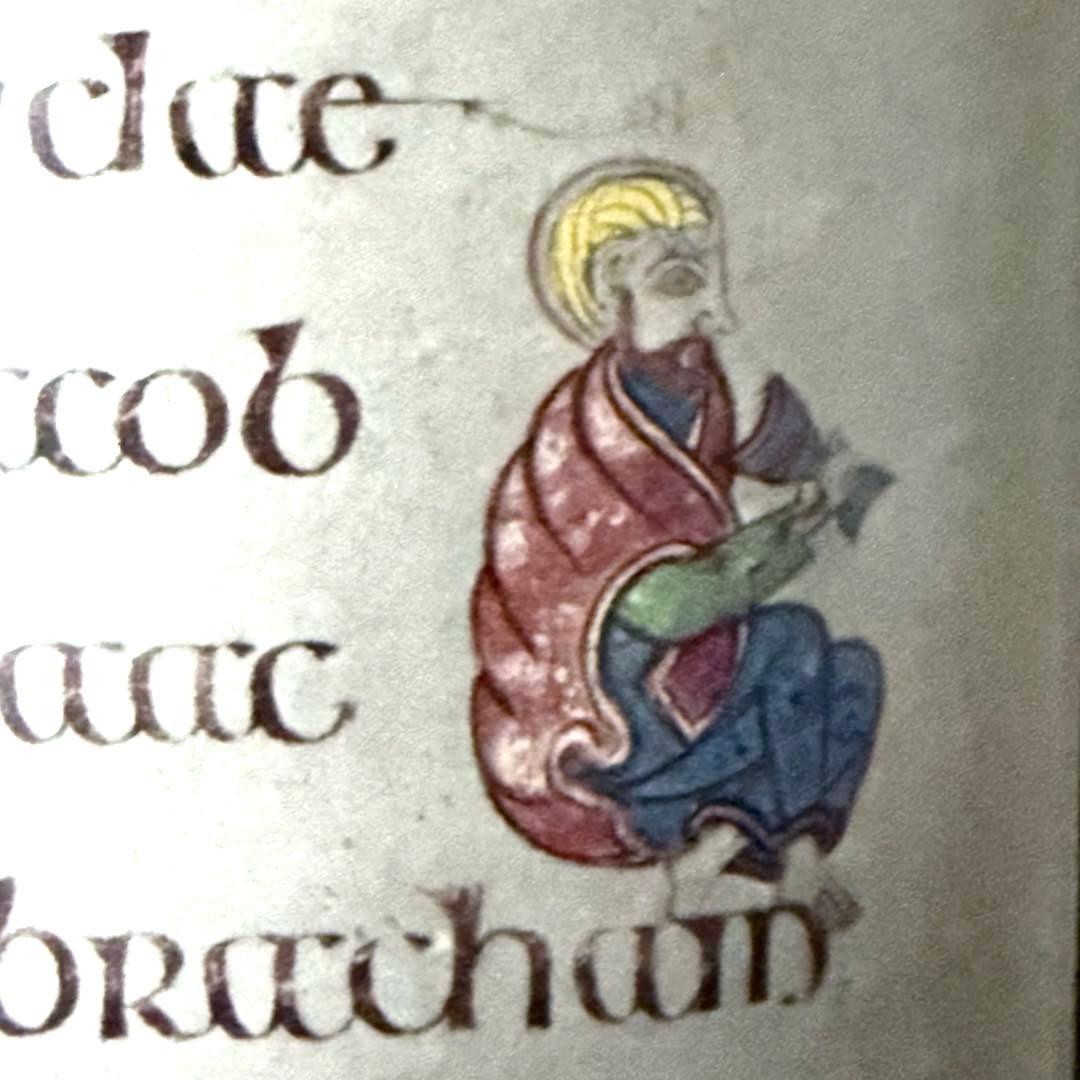 dae
acob
aac
bracham